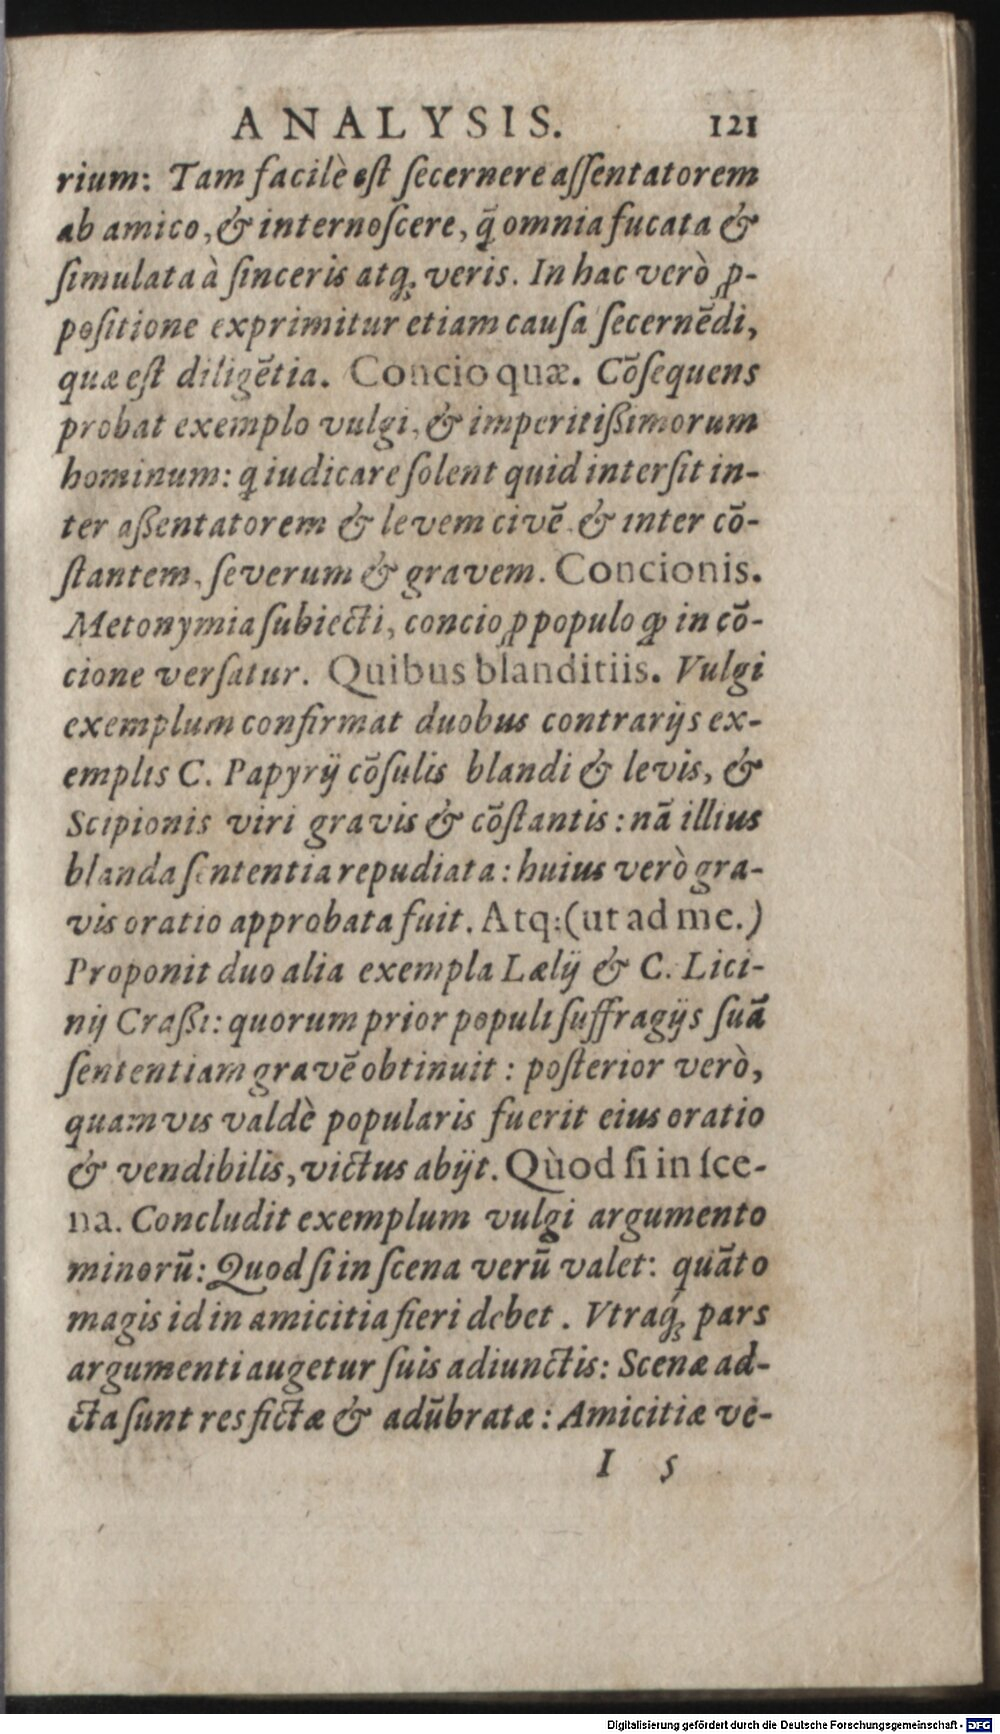 ANALYSIS. 121
rium: Tam facilè est ſecernere aſſentatorem
ab amico, & internoſcere, q̃ omnia fucata &
ſimulata à ſinceris atq; veris. In hac verò ꝓ-
poſitione exprimitur etiam cauſa ſecernẽdi,
quæ eſt diligẽtia. Concio quæ. Cõſequens
probat exemplo vulgi, & imperitißimorum
hominum: q iudicare ſolent quid interſit in-
ter aßentatorem & levem civẽ & inter cõ-
ſtantem, ſeverum & gravem. Concionis.
Metonymia ſubiecti, concio ꝓ populo qꝫ in cõ-
cione verſatur. Quibus blanditiis. Vulgi
exemplum confirmat duobus contrarijs ex-
emplis C. Papyrij cõſulis blandi & levis, &
Scipionis viri gravis & cõſtantis: nã illius
blanda ſententia repudiata: huius verò gra-
vis oratio approbata fuit. Atq;(ut ad me.)
Proponit duo alia exempla Lælij & C. Lici-
nij Craßi: quorum prior populi ſuffragijs ſuã
ſententiam gravẽ obtinuit: poſterior verò,
quamvis valdè popularis fuerit eius oratio
& vendibilis, victus abijt. Quòd ſi in ſce-
na. Concludit exemplum vulgi argumento
minorũ: Quod ſi in ſcena verũ valet: quãto
magis id in amicitia fieri debet. Vtraq; pars
argumenti augetur ſuis adiunctis: Scenæ ad-
cta ſunt res fictæ & adũbratæ: Amicitiæ ve-
I 5
Digitalisierung gefördert durch die Deutsche Forschungsgemeinschaft - DFG